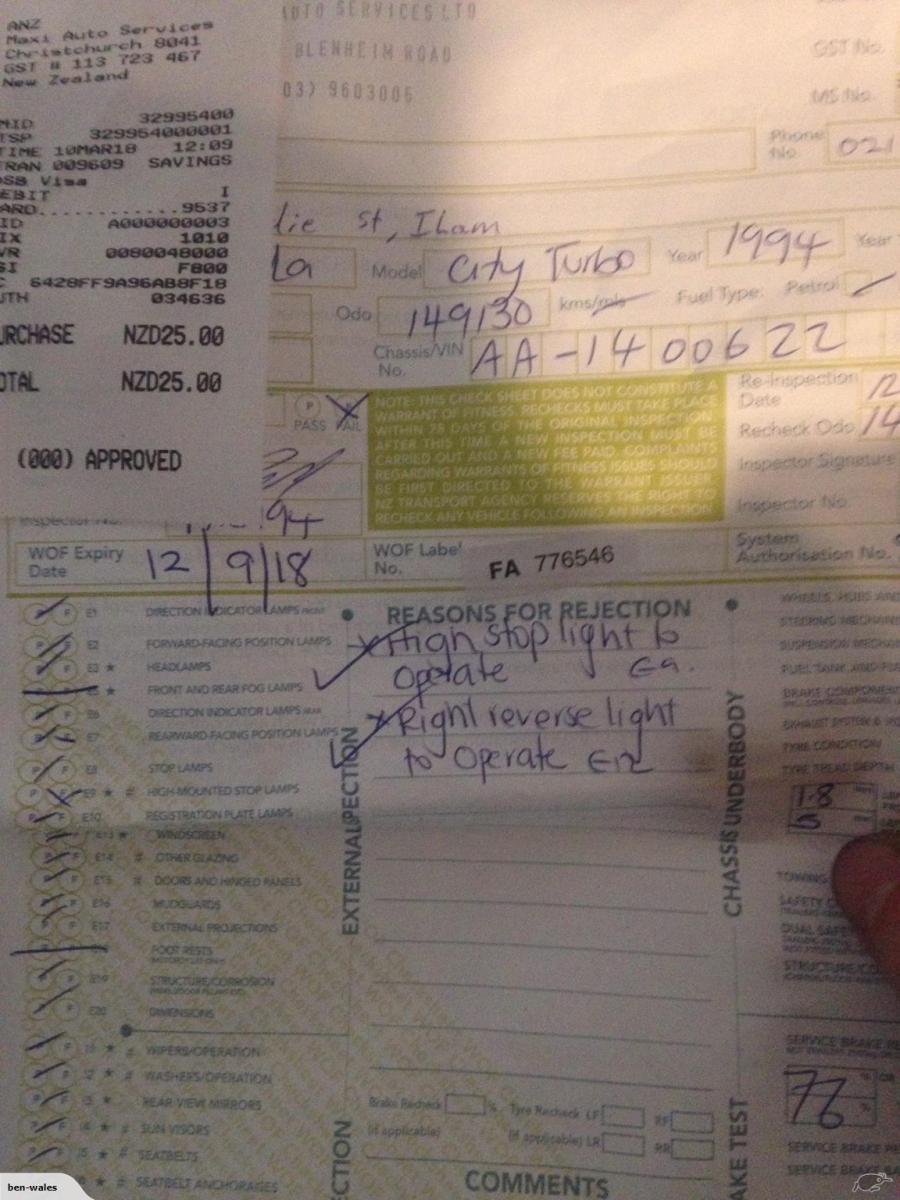 ANZ
Maxi Auto Services
Christchurch 8041
GST # 113 723 467
New Zealand
MID 32995400
TSP 329954000001
TIME 10MAR18 12:09
TRAN 009609 SAVINGS
Visa
DEBIT I
CARD............9537
A000000003
1010
0080048000
F800
6428FF9A96AB8F18
AUTH 034636
PURCHASE NZD25.00
TOTAL NZD25.00
(000) APPROVED
AUTO SERVICES LTD
BLENHEIM ROAD
03) 9603005
GST No.
MS No.
Phone No. 021
lie st, Ilam
la Model City Turbo Year 1994 Year
Odo 149130 kms/mls Fuel Type: Petrol
Chassis/VIN No. AA-1400622
P
PASS FAIL
NOTE: THIS CHECK SHEET DOES NOT CONSTITUTE A
WARRANT OF FITNESS. RECHECKS MUST TAKE PLACE
WITHIN 28 DAYS OF THE ORIGINAL INSPECTION.
AFTER THIS TIME A NEW INSPECTION MUST BE
CARRIED OUT AND A NEW FEE PAID. COMPLAINTS
REGARDING WARRANTS OF FITNESS ISSUES SHOULD
BE FIRST DIRECTED TO THE WARRANT ISSUER.
NZ TRANSPORT AGENCY RESERVES THE RIGHT TO
RECHECK ANY VEHICLE FOLLOWING AN INSPECTION
Re-Inspection Date 12
Recheck Odo 14
Inspector Signature
Inspector No
Inspector No.
WOF Expiry Date 12/9/18
WOF Label No. FA 776546
System Authorisation No.
E1 DIRECTION INDICATOR LAMPS FRONT
E2 FORWARD-FACING POSITION LAMPS
E3 * HEADLAMPS
* FRONT AND REAR FOG LAMPS
E6 DIRECTION INDICATOR LAMPS REAR
E7 REARWARD-FACING POSITION LAMPS
E8 STOP LAMPS
E9 * # HIGH-MOUNTED STOP LAMPS
E10 REGISTRATION PLATE LAMPS
E13 * WINDSCREEN
E14 # OTHER GLAZING
E15 # DOORS AND HINGED PANELS
E16 MUDGUARDS
E17 EXTERNAL PROJECTIONS
FOOT RESTS
E19 STRUCTURE/CORROSION
E20 DIMENSIONS
* # WIPERS/OPERATION
* # WASHERS/OPERATION
* REAR VIEW MIRRORS
* # SUN VISORS
* # SEATBELTS
* # SEATBELT ANCHORAGES
EXTERNAL
REASONS FOR REJECTION
High stop light to
operate E9.
Right reverse light
to operate E12
Brake Recheck %
(if applicable)
Tyre Recheck LF RF
(if applicable) LR RR
COMMENTS
CHASSIS UNDERBODY
WHEELS, HUBS AND
STEERING MECHAN
SUSPENSION MECHA
FUEL TANK AND FU
BRAKE COMPONEN
EXHAUST SYSTEM &
TYRE CONDITION
TYRE TREAD DEPTH
1.8
5
TOWING
STRUCTURE/CO
SERVICE BRAKE
76
SERVICE BRAKE
SERVICE BRAKE
ben-wales